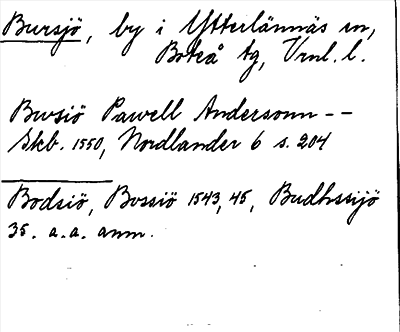 Bursjö, by i Ytterlännäs sn,
Boteå tg, Vrnl. l.
Bursiö Pawell Andersonn --
Skb. 1550, Nordlander 6 s. 204
Bodsiö, Bossiö 1543, 45, Budhssijö
35. a.a. anm.